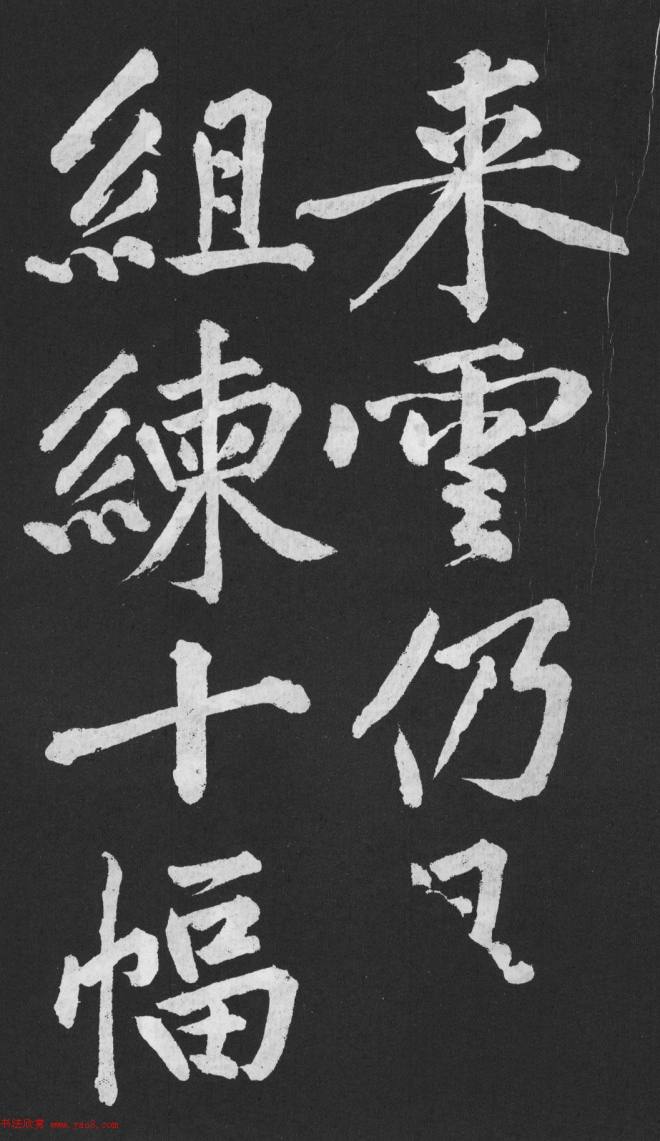 来雲仍
組練十幅
书法欣赏 www.yac8.com